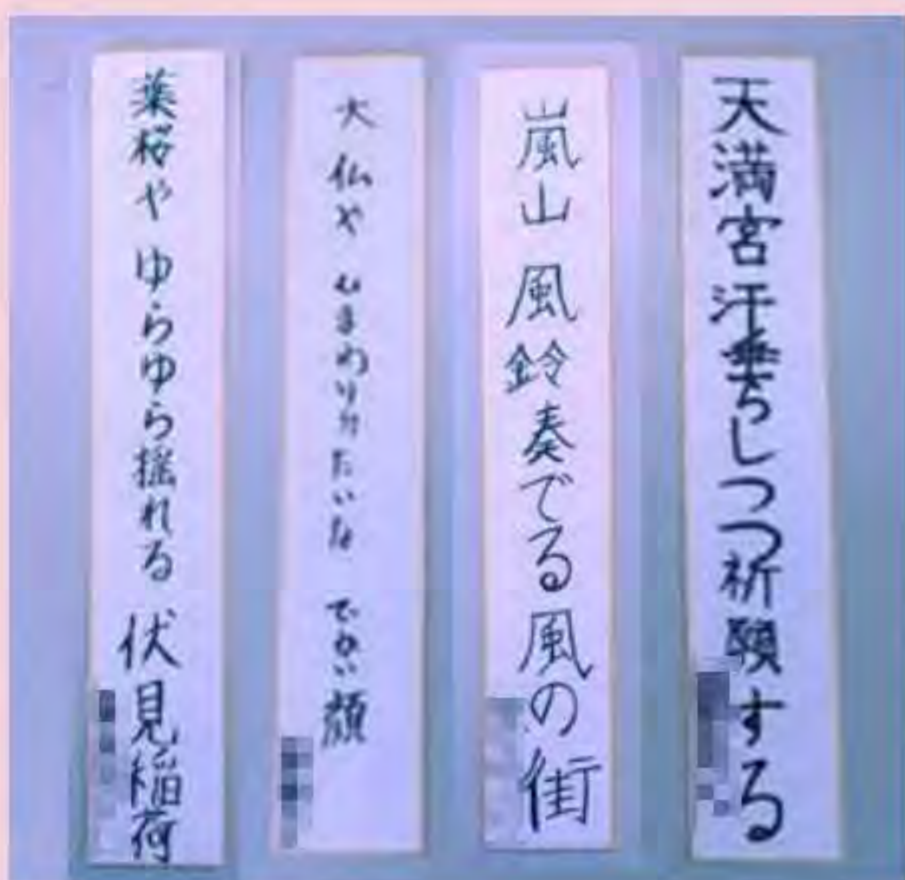 天満宮汗垂らしつつ祈願する
嵐山 風鈴奏でる風の街
大仏や ひまわりみたいな でかい顔
葉桜や ゆらゆら揺れる 伏見稲荷